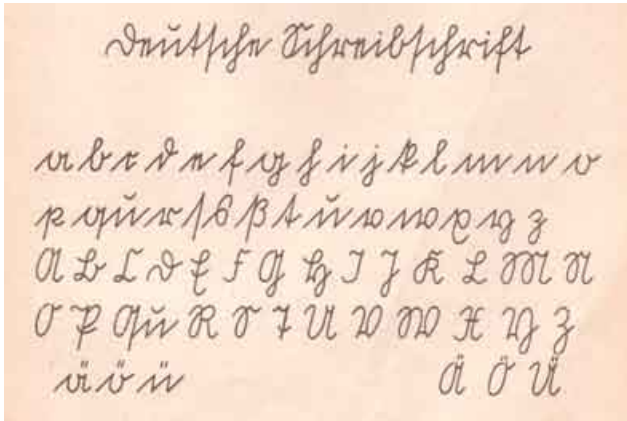 Deutsche Schreibschrift
a b c d e f g h i j k l m n o
p qu r ſ s ß t u v w x y z
A B C D E F G H I J K L M N
O P Qu R S T U V W X Y Z
ä ö ü Ä Ö Ü